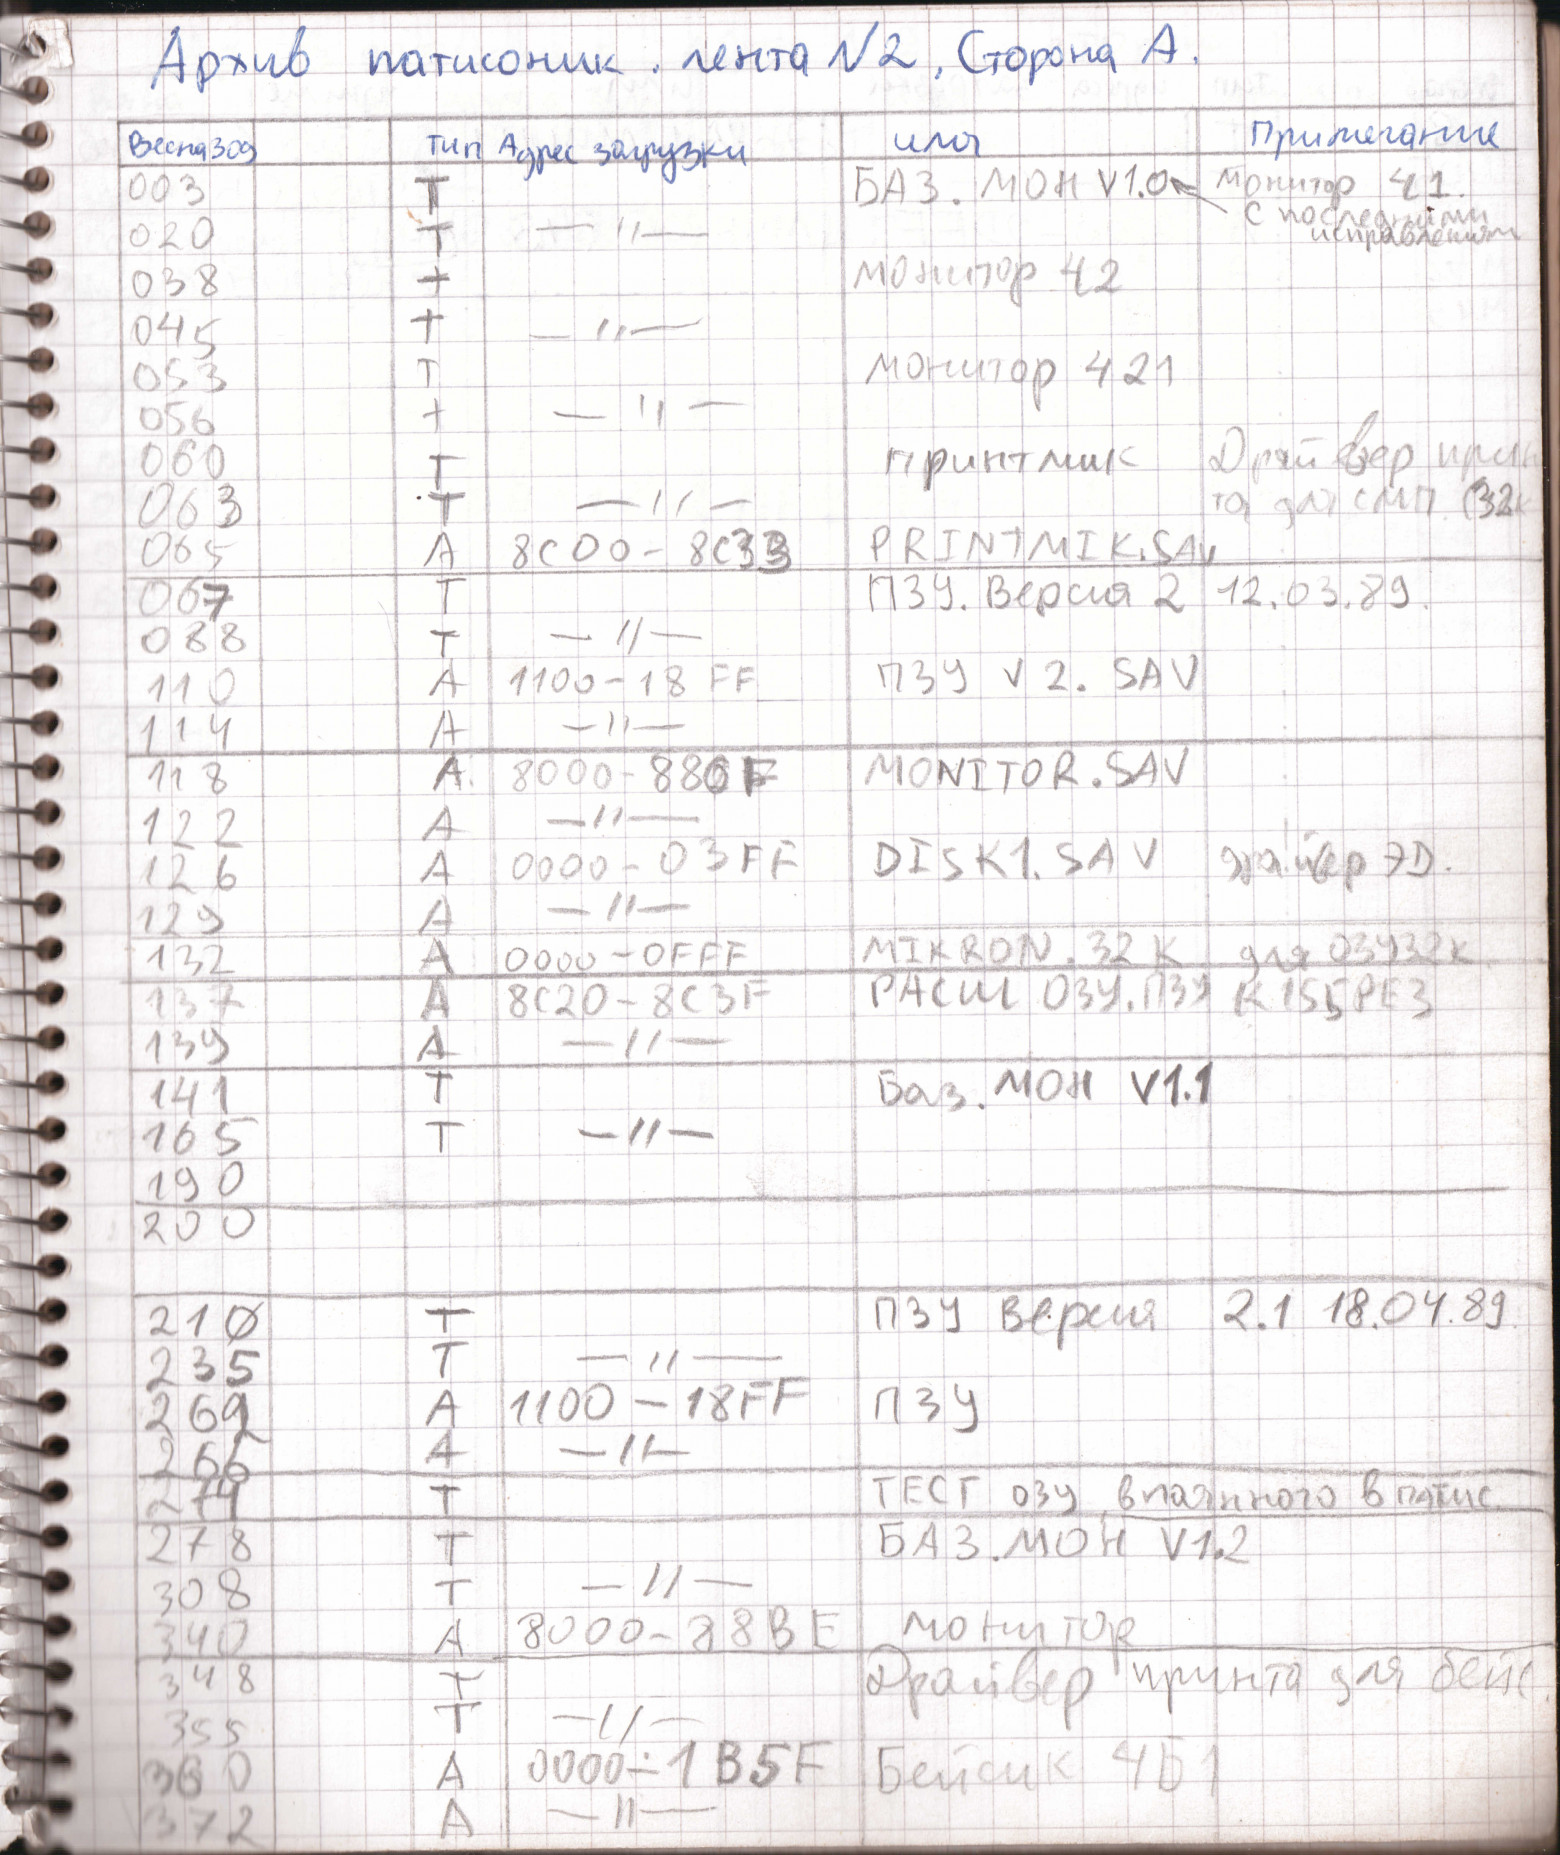 Архив патисоник. лента N2, Сторона А.
Тип Адрес загрузки имя Примечание
003 Т БАЗ. МОН V1.0 монитор ч1.
с последними
исправлениями
020 Т —〃—
038 Т монитор ч2
045 Т —〃—
053 Т монитор ч21
056 Т —〃—
060 Т принтмик Драйвер прин
063 Т —〃— та для СМП (32к
065 А 8C00 - 8C33 PRINTMIK.SAV
067 Т ПЗУ. Версия 2 12.03.89.
088 Т —〃—
110 А 1100-18FF ПЗУ V2. SAV
114 А —〃—
118 А. 8000-880F MONITOR.SAV
122 А —〃—
126 А 0000-03FF DISK1.SAV драйвер ЭД.
129 А —〃—
132 А 0000-0FFF MIKRON.32K для ОЗУ32к
137 А 8C20-8C3F РАСШ ОЗУ.ПЗУ К155РЕ3
139 А —〃—
141 Т Баз. МОН V1.1
165 Т —〃—
190
200
210 Т ПЗУ Версия 2.1 18.04.89.
235 Т —〃—
А 1100-18FF ПЗУ
266 А —〃—
274 Т ТЕСТ ОЗУ впаянного в патис.
278 Т БАЗ.МОН V1.2
308 Т —〃—
340 А 8000-88BE монитор
348 Т Драйвер принта для бейс.
355 Т —〃—
360 А 0000-1B5F Бейсик 4Б1
372 А —〃—